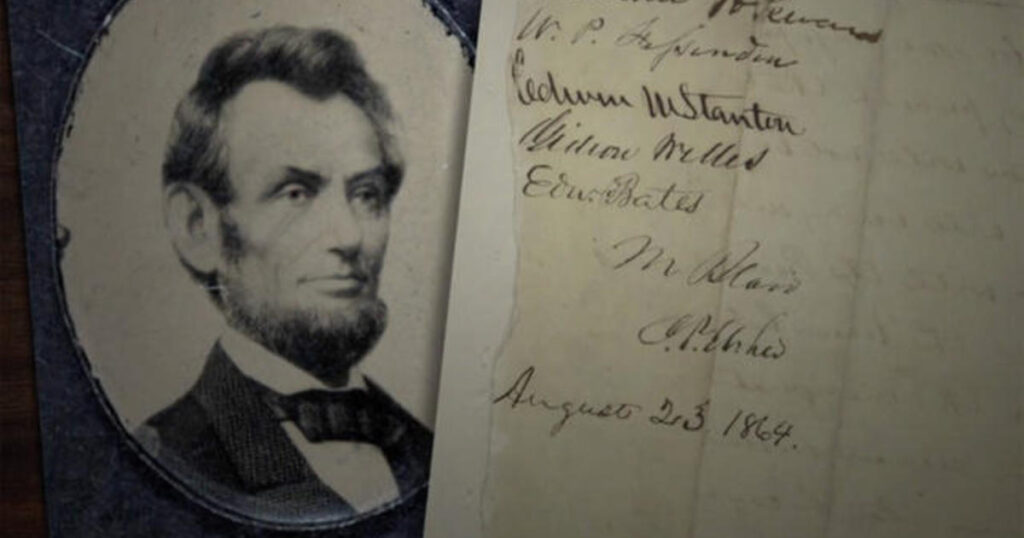 W. P. Fessenden
Edwin M Stanton
Gideon Welles
Edw. Bates
M Blair
J. P. Usher
August 23. 1864.